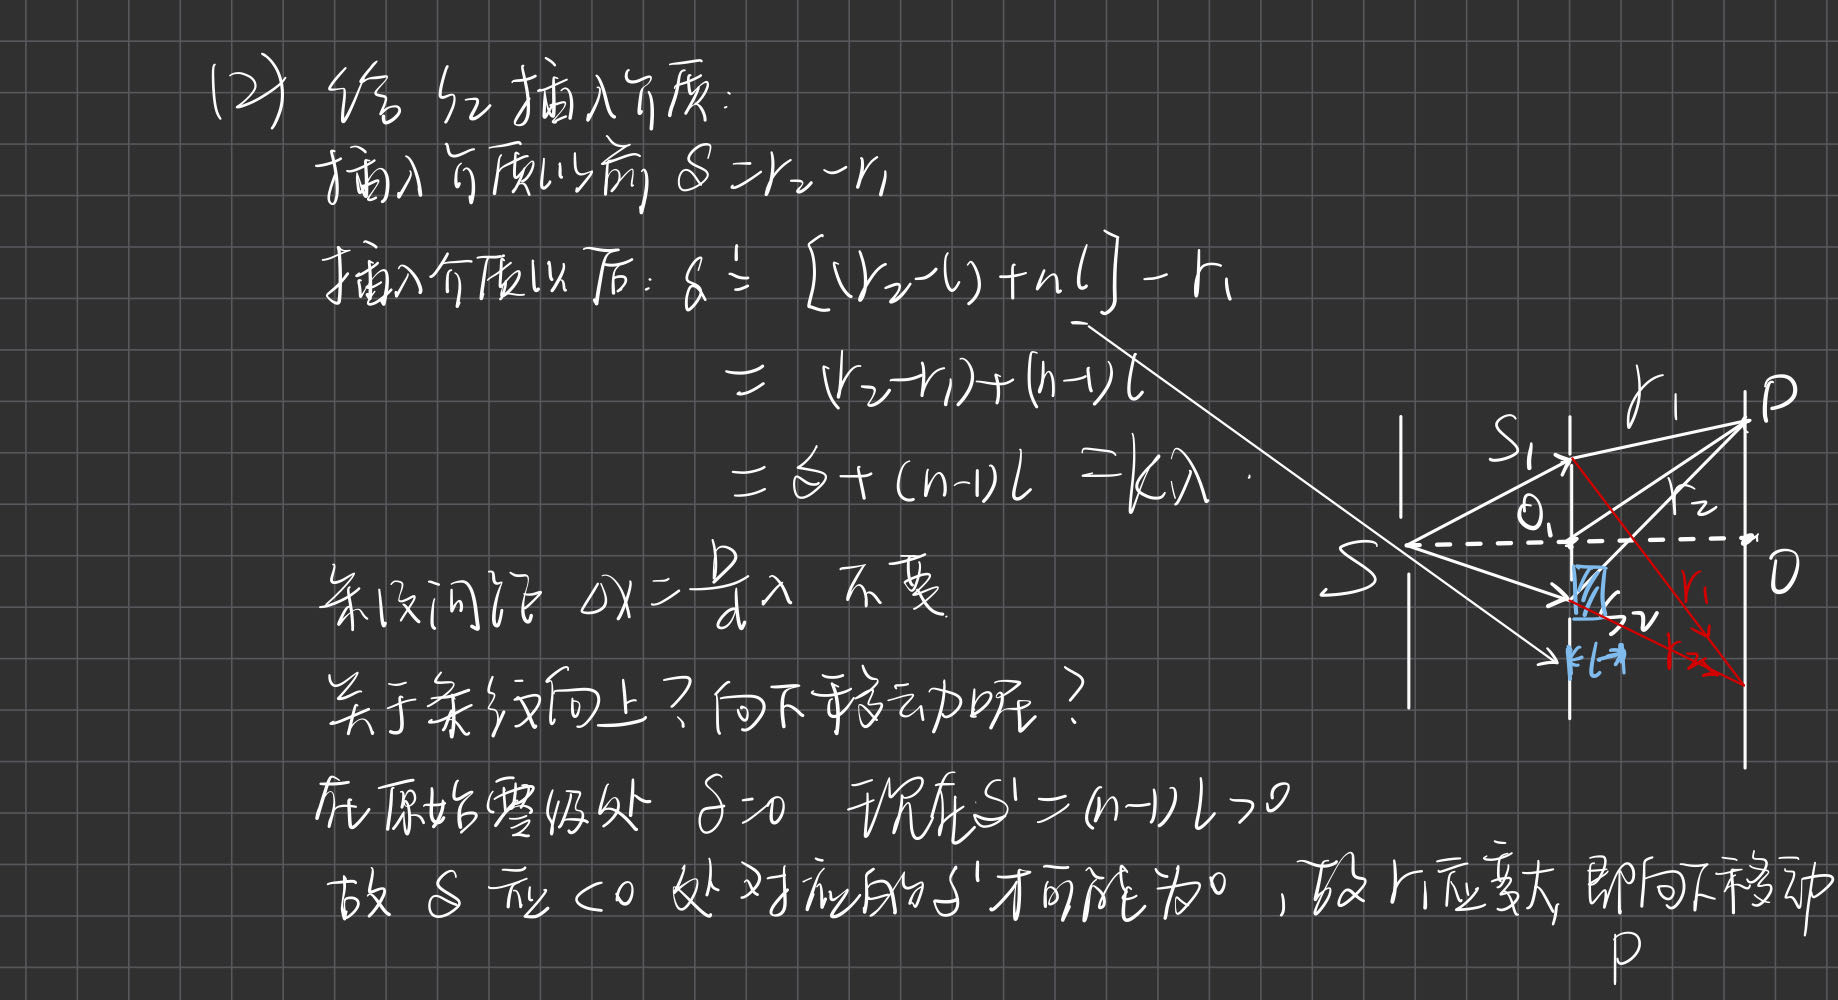 (2) 给 S₂ 插入介质:
插入介质以前 δ = r₂ - r₁
插入介质以后: δ' = [(r₂-l)+nl] - r₁
= (r₂-r₁)+(n-1)l
= δ+(n-1)l = kλ.
条纹间距 Δx = D/d λ 不变
关于条纹向上? 向下移动呢?
在原始零级处 δ=0 现在δ' = (n-1)l>0
故 δ 应 <0 处对应的δ'才可能为0, 故 r₁应变大, 即向下移动
P
S
S₁
O₁
S₂
r₁
r₂
P
O
r₁
r₂
l